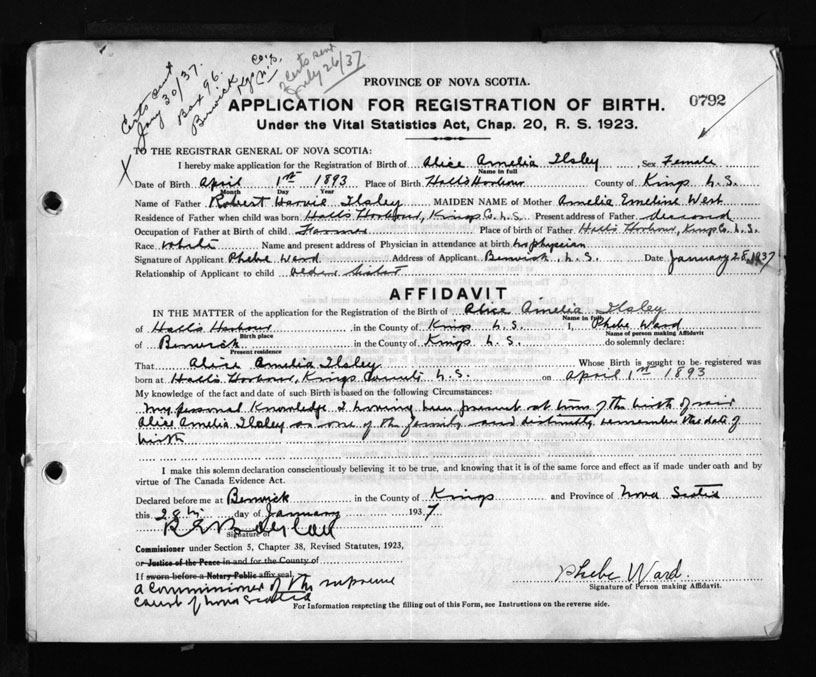 Certs sent
Jany 30/37.
Box 96.
Berwick
Kgs Co., N.S.
2 Certs sent
July 26/37
PROVINCE OF NOVA SCOTIA.
APPLICATION FOR REGISTRATION OF BIRTH. 0792
Under the Vital Statistics Act, Chap. 20, R. S. 1923.
X TO THE REGISTRAR GENERAL OF NOVA SCOTIA:
I hereby make application for the Registration of Birth of Alice Amelia Ilsley Sex Female
Name in full
Date of Birth April 1st 1893 Place of Birth Halls Harbour County of Kings N.S.
Month Day Year
Name of Father Robert Harvie Ilsley MAIDEN NAME of Mother Amelia Emeline West
Residence of Father when child was born Halls Harbour, Kings Co. N.S. Present address of Father deceased
Occupation of Father at Birth of child Farmer Place of birth of Father Halls Harbour, Kings Co. N.S.
Race white Name and present address of Physician in attendance at birth no physician
Signature of Applicant Phebe Ward Address of Applicant Berwick, N.S. Date January 28, 1937
Relationship of Applicant to child older sister
AFFIDAVIT
IN THE MATTER of the application for the Registration of the Birth of Alice Amelia Ilsley
Name in full
of Halls Harbour in the County of Kings N.S. I, Phebe Ward
Birth place Name of person making Affidavit
of Berwick in the County of Kings N.S. do solemnly declare:
Present residence
That Alice Amelia Ilsley Whose Birth is sought to be registered was
born at Halls Harbour, Kings County N.S. on April 1st 1893
My knowledge of the fact and date of such Birth is based on the following Circumstances:
My personal knowledge I having been present at time of the birth of said
Alice Amelia Ilsley as one of the family and distinctly remember the date of
birth
I make this solemn declaration conscientiously believing it to be true, and knowing that it is of the same force and effect as if made under oath and by
virtue of The Canada Evidence Act.
Declared before me at Berwick in the County of Kings and Province of Nova Scotia
this 28th day of January 1937
Signature of
Commissioner under Section 5, Chapter 38, Revised Statutes, 1923,
or Justice of the Peace in and for the County of
If sworn before a Notary Public affix seal.
A Commissioner of the Supreme
Court of Nova Scotia
Phebe Ward.
Signature of Person making Affidavit.
For Information respecting the filling out of this Form, see Instructions on the reverse side.